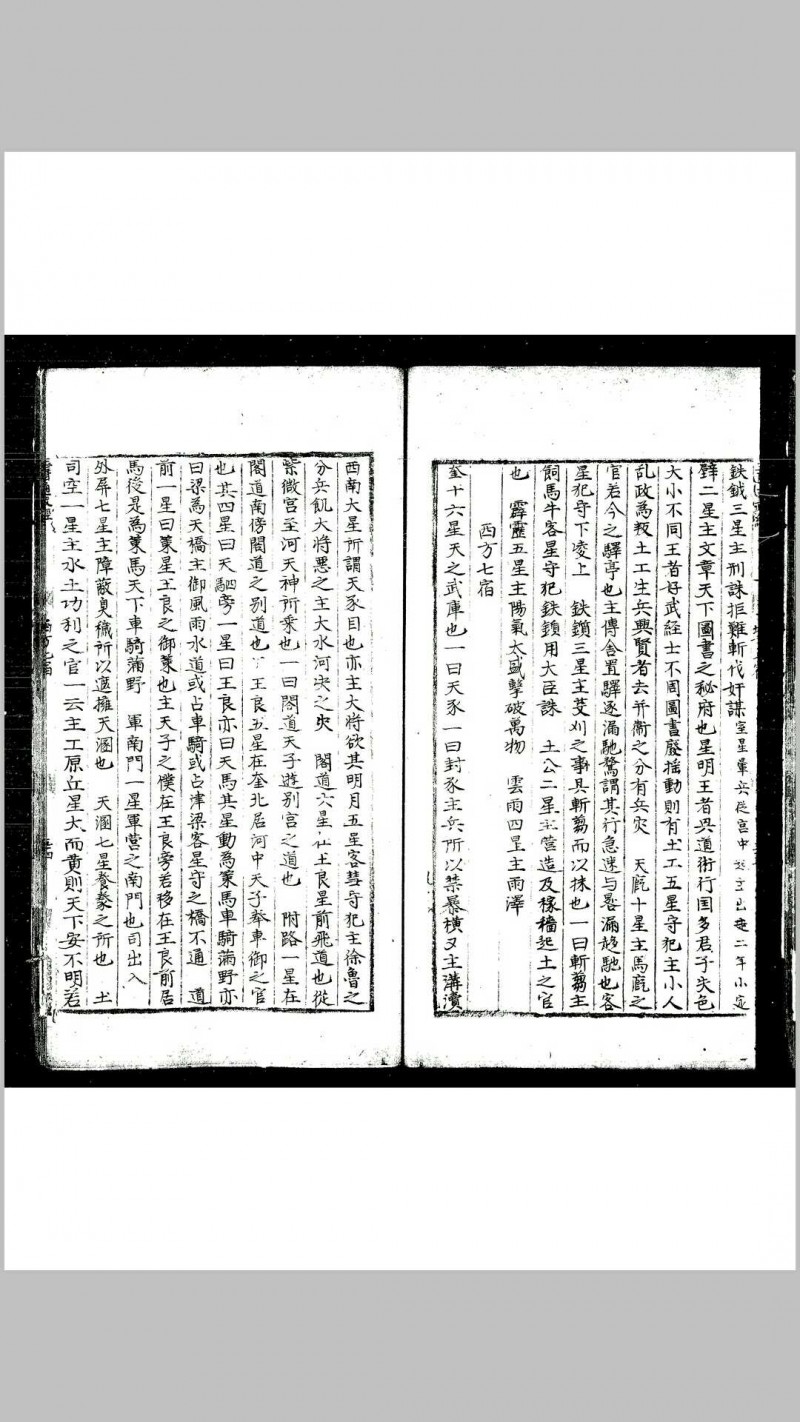 鉄鉞三星主刑誅拒難斬伐奸謀室星軍兵從宮中
壁二星主文章天下圖書之秘府也星明王者興道術行国多君子失色
大小不同王者好武經士不用圖書廢揺動則有土工五星守犯主小人
乱政為叛土工生兵興賢者去并衛之分有兵灾　天廐十星主馬廐之
官若今之驛亭也主傳舍置驛逐漏馳騖謂其行急速与晷漏趍馳也客
星犯守下凌上　鉄鎖三星主芟刈之事具斬蒭而以抹也一曰斬蒭主
飼馬牛客星守犯鉄鎖用大臣誅　土公二星主营造及稼穡起土之官
也　霹靂五星主陽氣太盛擊破萬物　雲雨四星主雨澤
西方七宿
奎十六星天之武庫也一曰天豕一曰封豕主兵所以禁暴横又主溝瀆
西南大星所謂天豕目也亦主大将欲其明月五星客彗守犯主徐魯之
分兵飢大将悪之主大水河决之灾　閣道六星在王良星前飛道也從
紫微宮至河天神所乘也一曰閣道天子遊别宮之道也　附路一星在
閣道南傍閣道之别道也　王良五星在奎北居河中天子奉車御之官
也其四星曰天駟旁一星曰王良亦曰天馬其星動為策馬車騎满野亦
曰梁為天橋主御風雨水道或占車騎或占津梁客星守之橋不通　道
前一星曰策星王良之御策也主天子之僕在王良旁若移在王良前居
馬後是為策馬天下車騎滿野　軍南門一星軍营之南門也司出入
外屏七星主障蔽臭穢所以遮擁天溷也　天溷七星養豢之所也　土
司空一星主水土功利之官一云主工原丘星大而黄則天下安不明若